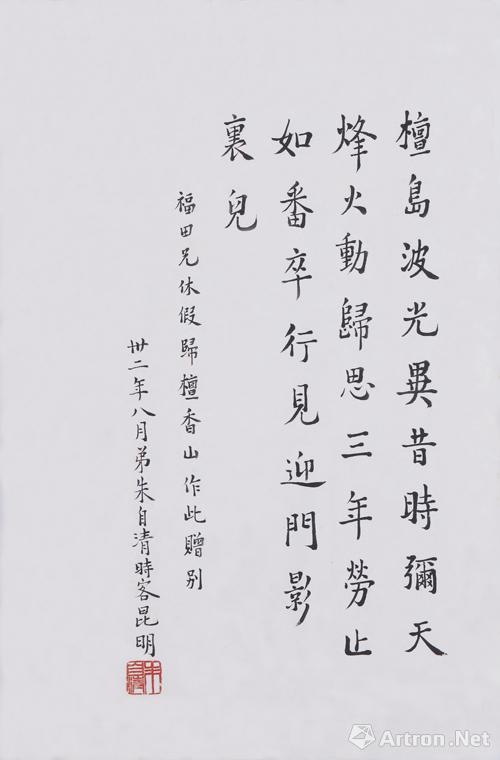 檀島波光異昔時彌天
烽火動歸思三年勞止
如番卒行見迎門影
裏兒
福田兄休假歸檀香山作此贈别
卅二年八月弟朱自清時客昆明
朱自清
雅昌艺术网
Artron.Net